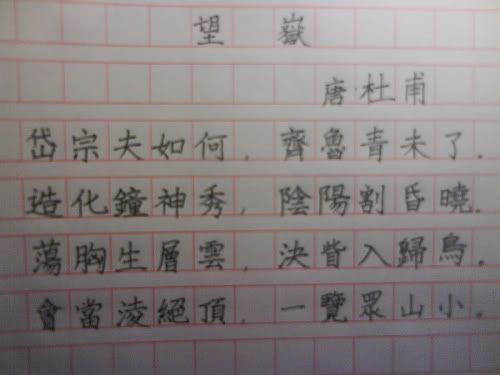 望嶽
唐杜甫
岱宗夫如何，齊魯青未了。
造化鐘神秀，陰陽割昏曉。
蕩胸生層雲，決眥入歸鳥。
會當淩絕頂，一覽眾山小。